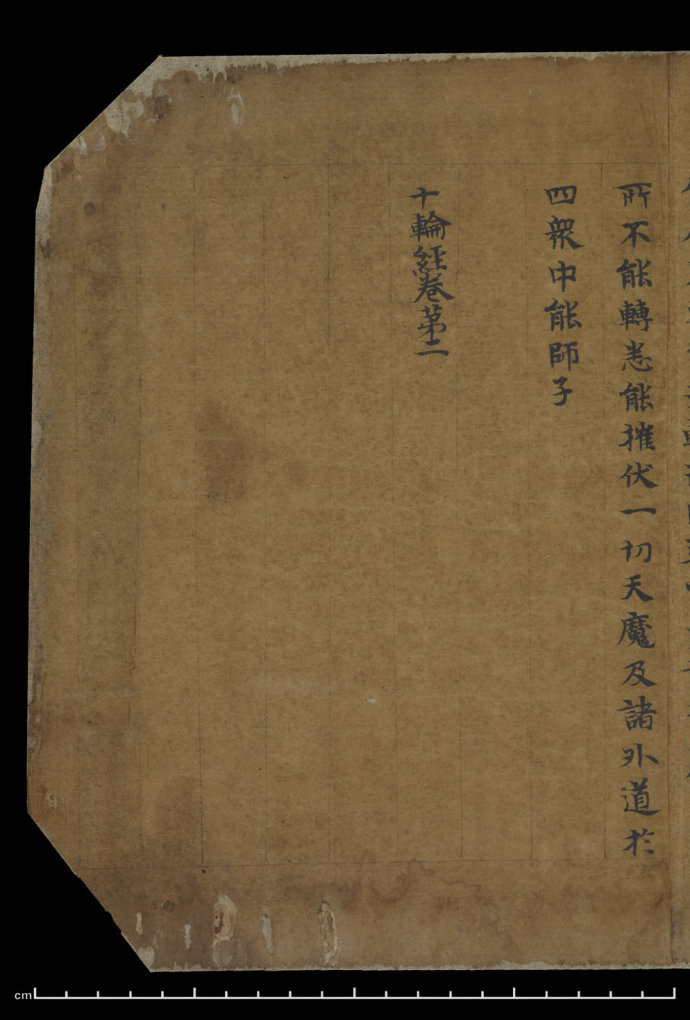 所不能轉悉能摧伏一切天魔及諸外道於
四衆中能師子
十輪經卷第二
cm